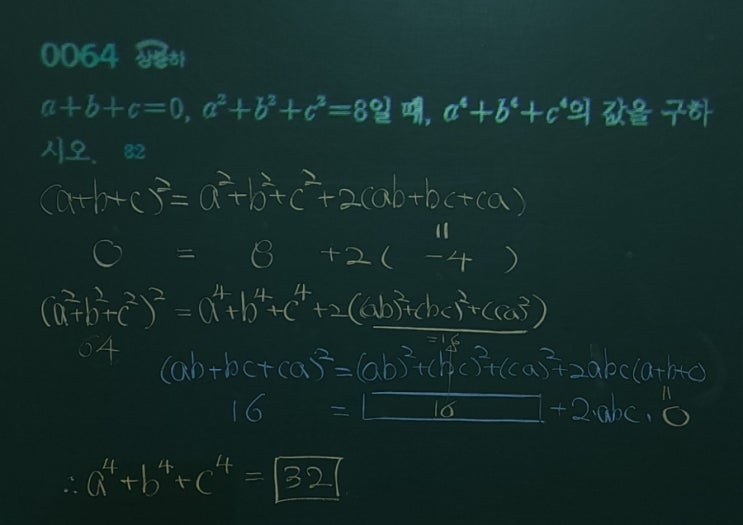 0064 상중하
a+b+c=0, a²+b²+c²=8일 때, a⁴+b⁴+c⁴의 값을 구하
시오. 32
(a+b+c)² = a²+b²+c²+2(ab+bc+ca)
0 = 8 +2( -4 )
(a²+b²+c²)² = a⁴+b⁴+c⁴+2((ab)²+(bc)²+(ca)²)
64 =16
(ab+bc+ca)²=(ab)²+(bc)²+(ca)²+2abc(a+b+c)
16 = 16 +2·abc·0
∴ a⁴+b⁴+c⁴ = 32